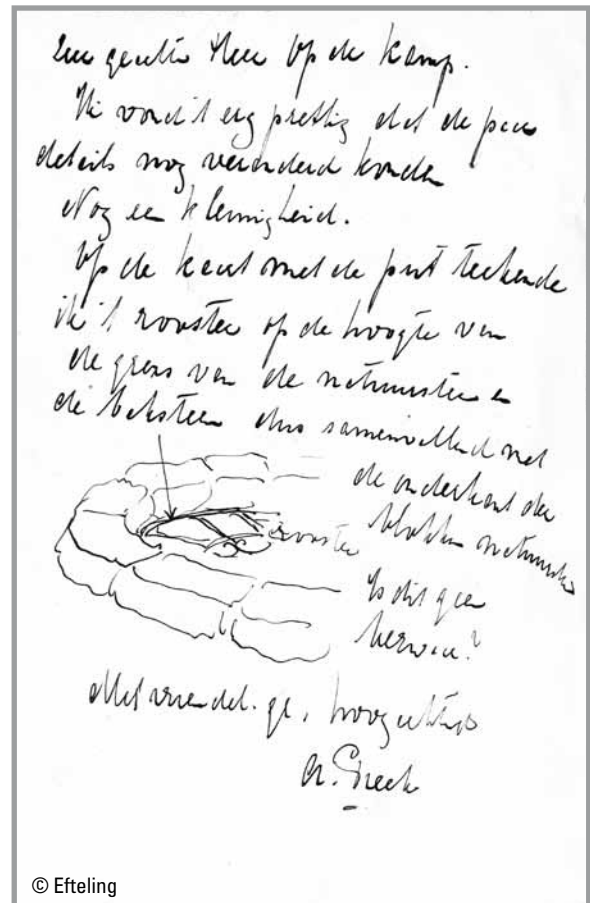 Zeer geachte Heer Op de Kamp.
Ik vond 't erg prettig dat de paar
details nog veranderd konden
Nog een kleinigheid.
Op de kant met de put teekende
ik 't rooster op de hoogte van
de grens van de natuursteen en
de baksteen dus samenvallend met
de onderkant der
blokken natuursteen
rooster
Is dit geen
bezwaar?
Met vriendel. gr, hoogachtend
A. Pieck
© Efteling